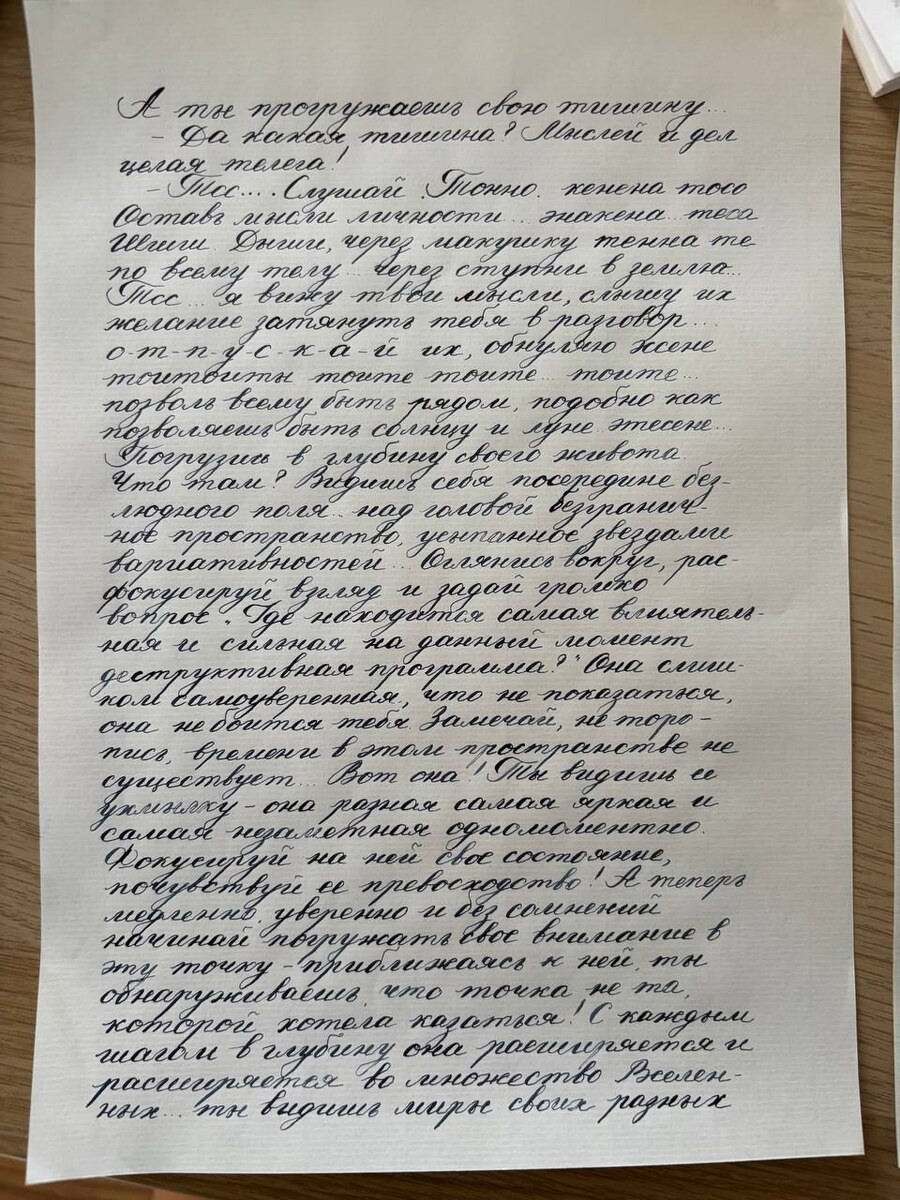 А ты прогружаешь свою тишину...
– Да какая тишина? Мыслей и дел
целая телега!
– Тсс.... Слушай. Точно. кенена тосо
Оставь мысли личности... знакена теса
Шгиги. Дыши, через макушку тенна те
по всему телу... через ступни в землю...
Тсс... я вижу твои мысли, слышу их
желание затянуть тебя в разговор...
о-т-п-у-с-к-а-й их, обнуляю жене
тоитоиты тоите тоите... тоите...
позволь всему быть рядом, подобно как
позволяешь быть солнцу и луне этесене...
Погрузись в глубину своего живота.
Что там? Видишь себя посередине без-
людного поля... над головой безгранич-
ное пространство, усыпанное звездами
вариативностей... Оглянись вокруг, рас-
фокусируй взгляд и задай громко
вопрос „Где находится самая влиятель-
ная и сильная на данный момент
деструктивная программа?" Она слиш-
ком самоуверенная, что не показаться,
она не боится тебя. Замечай, не торо-
пись, времени в этом пространстве не
существует... Вот она! Ты видишь ее
ухмылку – она разная самая яркая и
самая незаметная одномоментно.
Фокусируй на ней свое состояние,
почувствуй ее превосходство! А теперь
медленно, уверенно и без сомнений
начинай погружать свое внимание в
эту точку – приближаясь к ней, ты
обнаруживаешь, что точка не та,
которой хотела казаться! С каждым
шагом в глубину она расширяется и
расширяется во множество Вселен-
ных... ты видишь миры своих разных